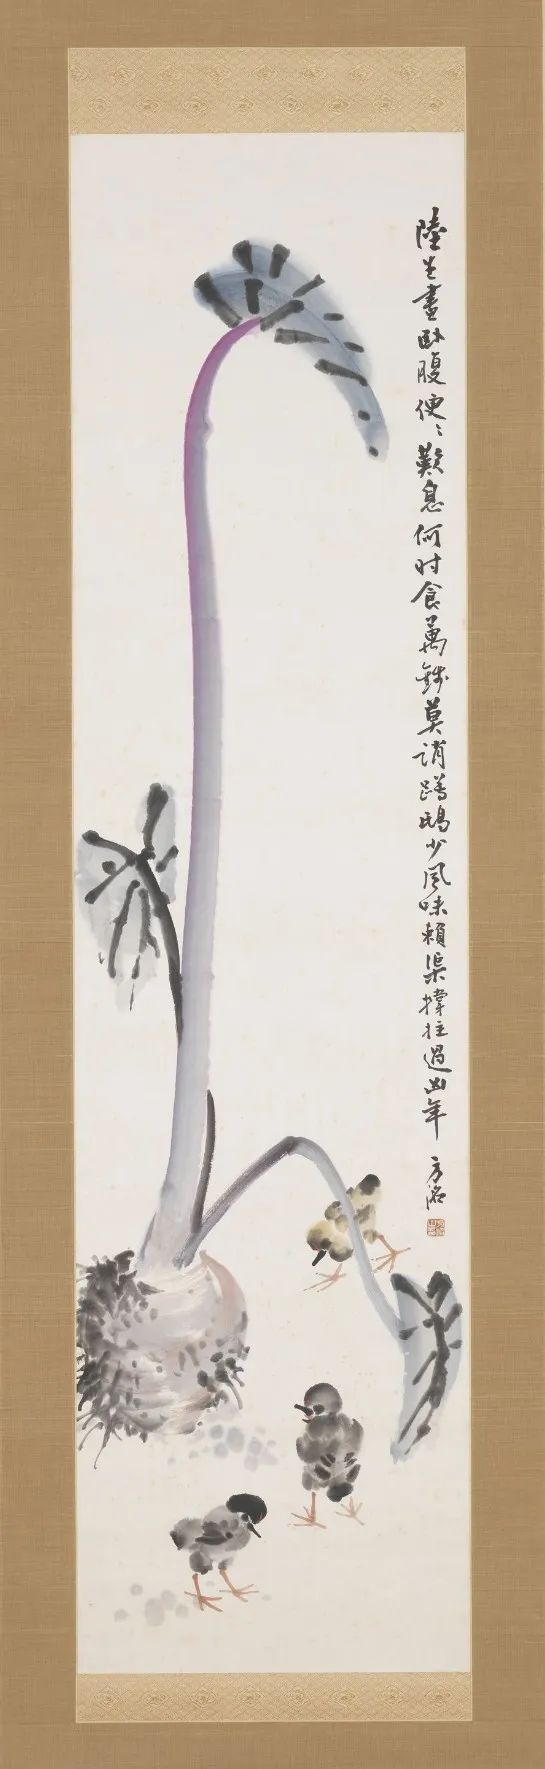 陸生晝臥腹便〻歎息何时食萬錢莫誚蹲鴟少風味賴渠撐拄過凶年
方洺